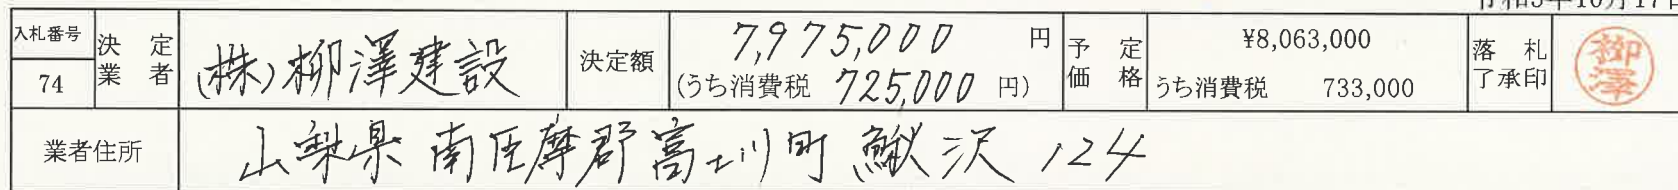 令和5年10月17日
入札番号 74 決定業者 (株)柳澤建設 決定額 7,975,000 円 (うち消費税 725,000 円) 予定価格 ¥8,063,000 うち消費税 733,000 落札了承印 柳澤
業者住所 山梨県南巨摩郡富士川町鰍沢124